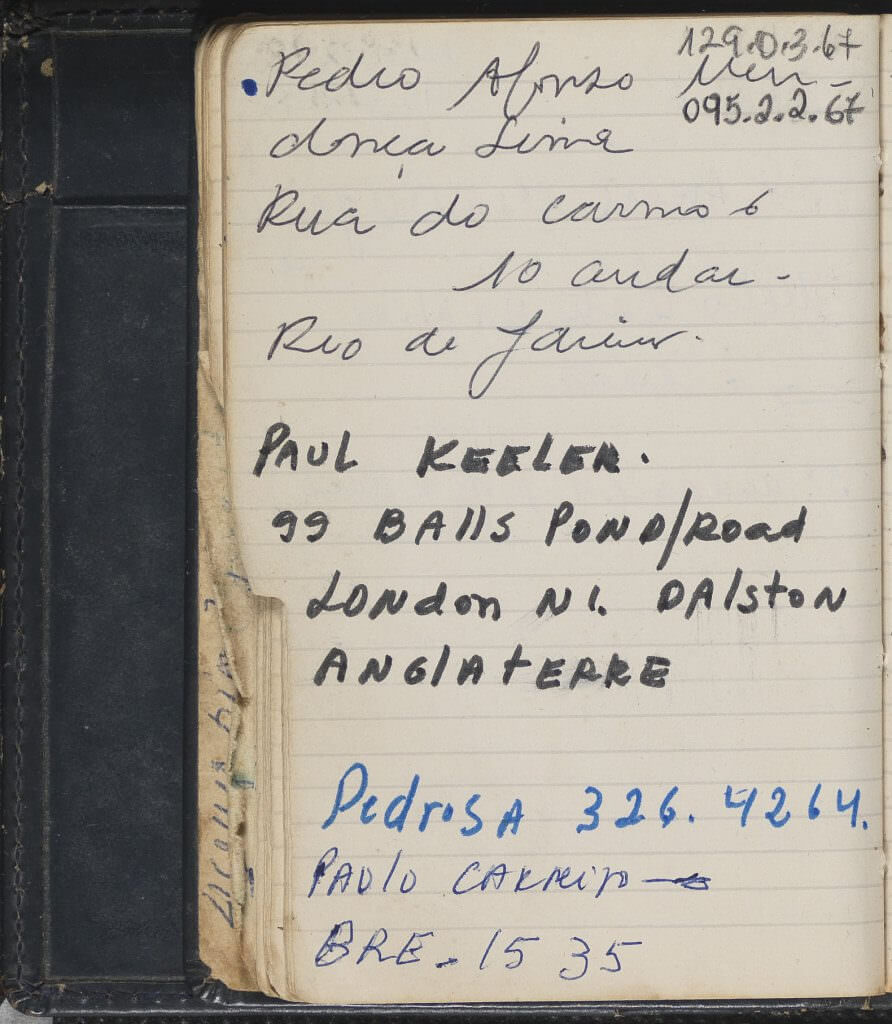 129.0.3.67
Pedro Afonso Men-
095.2.2.67
donça Lima
Rua do Carmo 6
10 andar -
Rio de Janeiro.
PAUL KEELER.
99 BAllS POND/Road
LONdon N1. DAlstON
ANGlAtERRE
PedrosA 326.4264.
PAOlo
BRE-1535